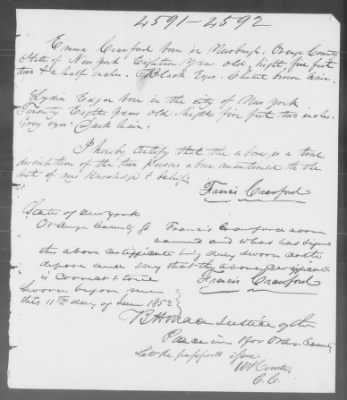 4591-4592
Emma Crawford born in Newburgh. Orange County
State of New York Eighteen Years old, hight five feet
two & a half inches. Black Eyes. Chesnut brown hair.
Lydia Edgar born in the city of New York
Twenty Eight Years old. hight five feet two inches.
Grey eyes Dark hair.
I hereby Certify that the above is a true
description of the two persons above mentioned to the
best of my knowledge & belief.
Francis Crawford
State of New York
Orange County SS Francis Crawford above
named and who has signed
the above certificate being duly sworn doth
depose and say that the above certificate
is correct & true
Francis Crawford
Sworn before me
this 11th day of June 1852
Justice of the
Peace in & for Orange County
Let the passports
C.C.